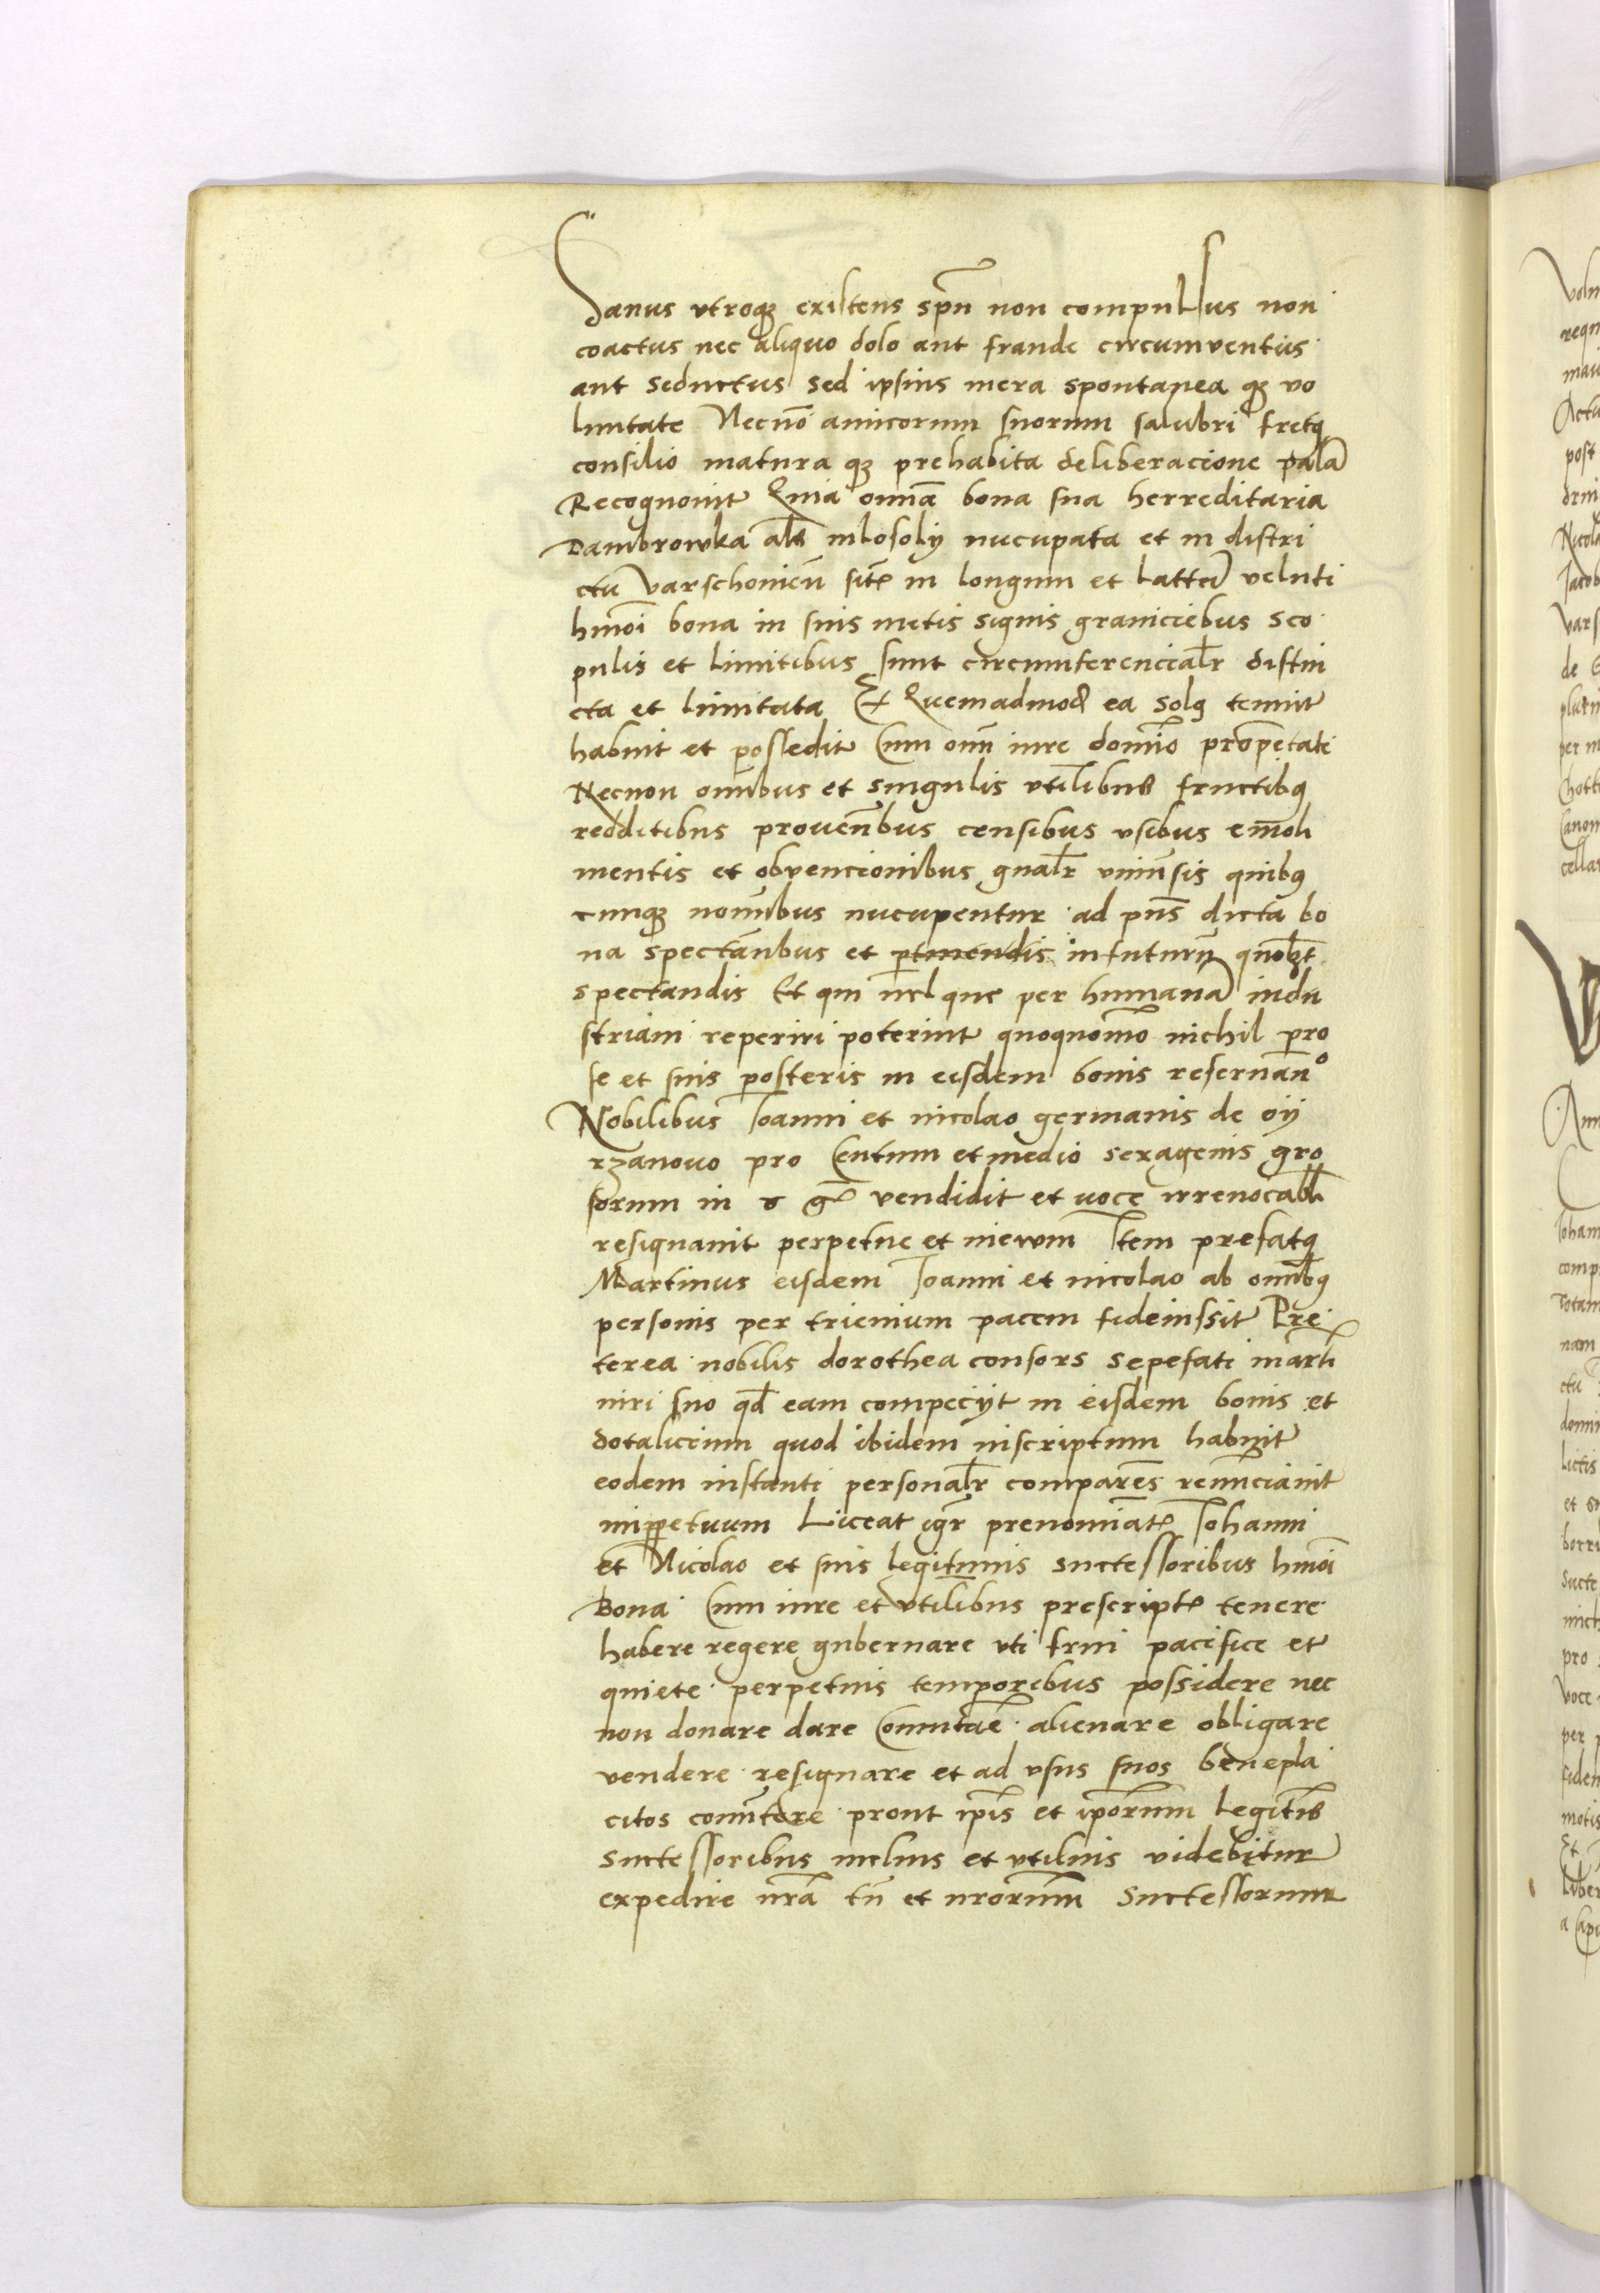 Sanus utroque existens spũ non compulsus non
coactus nec aliquo dolo aut fraude circumventus
aut seductus sed ipsius mera spontanea qȝ vo
luntate Necnō amicorum suorum salubri fretꝰ
consilio matura qȝ prehabita deliberacione palā
Recognovit Quia omīa bona sua herreditaria
Dambrowka als mlosoly nucupata et in distri
ctu varschoniēn sitꝭ in longum et lattū veluti
hmōi bona in suis metis signis graniciebus sco
pulis et limitibus sunt circumferencialr̄ distin
cta et limitata Et Quemadmod ea solꝰ tenuit
habuit et possedit Cum omī iure domīo proprietati
Necnon omībus et singulis utilibus fructibꝰ
redditibus provenībus censibus usibus emōli
mentis et obvencionibus gnalr̄ univēsis quibꝰ
cunqȝ nomībus nucupentur ad pn̄s dicta bo
na spectānbus et ptinendis in futurū quōlȝt
spectandis Et qui vel que per humanā indu
striam reperiri poterint quoquomō nichil pro
se et suis posteris in eisdem bonis reservañᵒ
Nobilibus Ioanni et nicolao germanis de oy
rzanovo pro Centum et medio sexagenis gro
sorum in vendidit et voce irrevocabli
resignavit perpetue et inewm Item prefatꝰ
Martinus eisdem Ioanni et nicolao ab omībꝰ
personis per trienium pacem fideiussit Pre
terea nobilis dorothea consors sepefati marti
viri suo qd eam compeciyt in eisdem bonis et
dotalicium quod ibidem inscriptum habuit
eodem instanti personalr̄ comparēs renūciavit
inppetuum Liceat igr̄ prenominatꝭ Iohanni
et Nicolao et suis legitimis successoribus hmōi
Bona Cum iure et utilibus prescriptꝭ tenere
habere regere gubernare uti frui pacifice et
quiete perpetuis temporibus possidere nec
non donare dare Comutāe alienare obligare
vendere resignare et ad usus suos benepla
citos convtere prout ip̄is et ip̄orum legitīs
successoribus melius et utilius videbitur
expedire nrā tn̄ et nrorum successorum